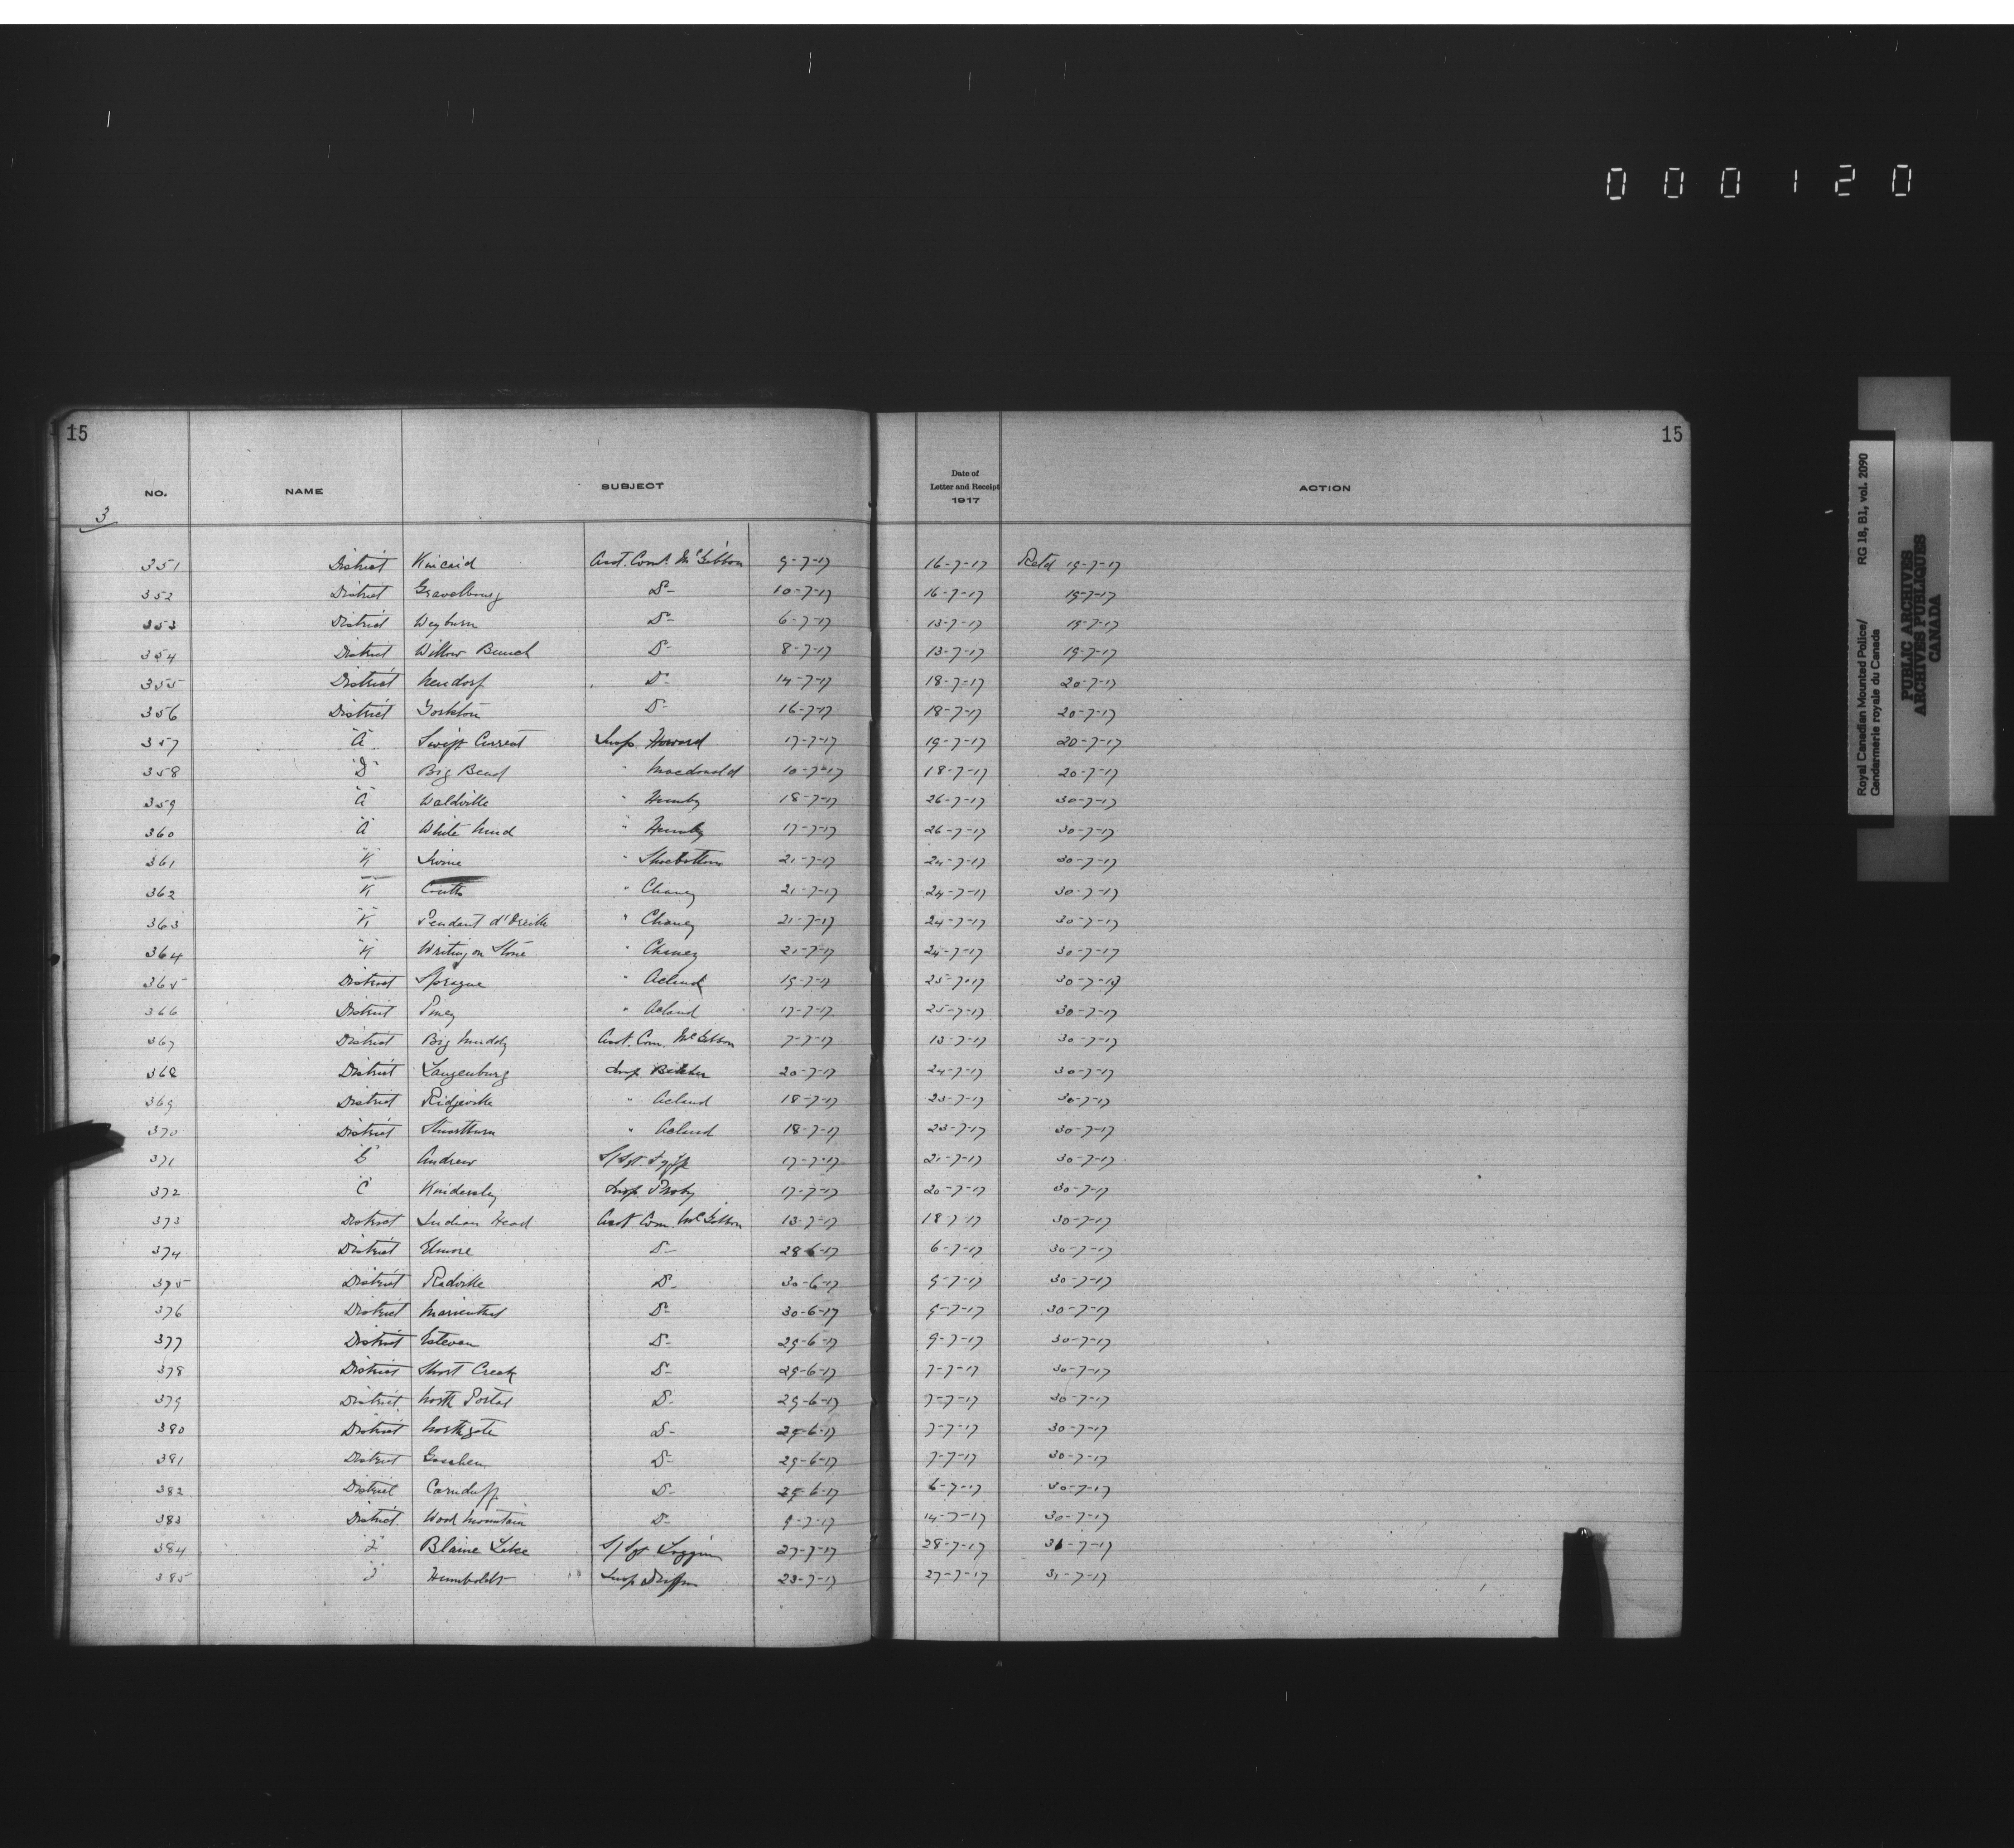 000120
15 15
NO. NAME SUBJECT Date of Letter and Receipt 1917 ACTION
3
351 District Kincaid Asst. Com. McGibbon 9-7-17 16-7-17 Retd 19-7-17
352 District Gravelbourg D- 10-7-17 16-7-17 19-7-17
353 District Weyburn D- 6-7-17 13-7-17 19-7-17
354 District Willow Bunch D- 8-7-17 13-7-17 19-7-17
355 District Neudorf D- 14-7-17 18-7-17 20-7-17
356 District Yorkton D- 16-7-17 18-7-17 20-7-17
357 "A" Swift Current Insp. Howard 17-7-17 19-7-17 20-7-17
358 "D" Big Bend " Macdonald 10-7-17 18-7-17 20-7-17
359 "A" Waldville " Humby 18-7-17 26-7-17 30-7-17
360 "A" White Mud " Humby 17-7-17 26-7-17 30-7-17
361 "K" Irvine " Shoebottom 21-7-17 24-7-17 30-7-17
362 "K" Coutts " Chaney 21-7-17 24-7-17 30-7-17
363 "K" Pendant d'Oreille " Chaney 21-7-17 24-7-17 30-7-17
364 "K" Writing on Stone " Chaney 21-7-17 24-7-17 30-7-17
365 District Sprague " Acland 19-7-17 25-7-17 30-7-17
366 District Piney " Acland 17-7-17 25-7-17 30-7-17
367 District Big Muddy Asst. Com. McGibbon 7-7-17 13-7-17 30-7-17
368 District Langenburg Insp. 20-7-17 24-7-17 30-7-17
369 District Ridgeville " Acland 18-7-17 23-7-17 30-7-17
370 District Stuartburn " Acland 18-7-17 23-7-17 30-7-17
371 Andrew S/Sgt. Fyffe 17-7-17 21-7-17 30-7-17
372 "C" Kindersley Insp. Proby 17-7-17 20-7-17 30-7-17
373 District Indian Head Asst. Com. McGibbon 13-7-17 18-7-17 30-7-17
374 District Elmore D- 28-6-17 6-7-17 30-7-17
375 District Radville D- 30-6-17 9-7-17 30-7-17
376 District Marienthal D- 30-6-17 9-7-17 30-7-17
377 District Estevan D- 29-6-17 9-7-17 30-7-17
378 District Short Creek D- 29-6-17 7-7-17 30-7-17
379 District North Portal D- 29-6-17 7-7-17 30-7-17
380 District Northgate D- 29-6-17 7-7-17 30-7-17
381 District D- 29-6-17 7-7-17 30-7-17
382 District Carnduff D- 29-6-17 6-7-17 30-7-17
383 District Wood Mountain D- 9-7-17 14-7-17 30-7-17
384 Blaine Lake S/Sgt 27-7-17 28-7-17 31-7-17
385 Humboldt Insp Duffus 23-7-17 27-7-17 31-7-17
Royal Canadian Mounted Police/ RG 18, B1, vol. 2090
Gendarmerie royale du Canada
PUBLIC ARCHIVES
ARCHIVES PUBLIQUES
CANADA